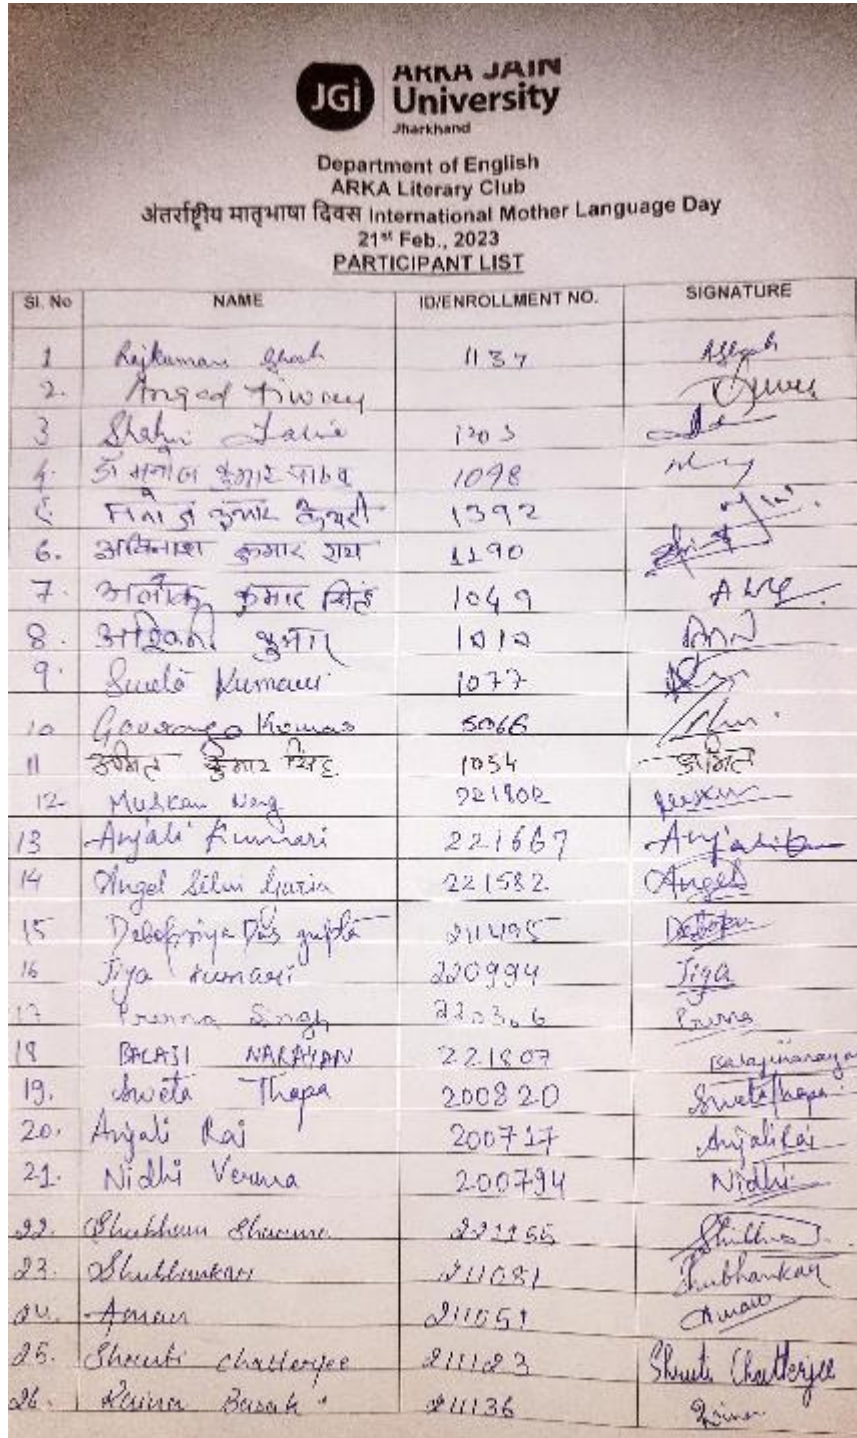 JGi ARKA JAIN
University
Jharkhand
Department of English
ARKA Literary Club
अंतर्राष्ट्रीय मातृभाषा दिवस International Mother Language Day
21st Feb., 2023
PARTICIPANT LIST
Sl. No NAME ID/ENROLLMENT NO. SIGNATURE
1 Rajkumari Ghosh 1137
2. Angad Tiwary
3
4. डॉ मनोज कुमार पाठक 1098
5. मनोज कुमार 1392
6. अविनाश कुमार राय 1190
7. अलोक कुमार सिंह 1049
8. अश्विनी कुमार 1010
9. Sweta Kumari 1077
10 Gouranga Kumar 5066
11 अमित कुमार सिंह 1054 अमित
12. Muskan 221802 Muskan
13 Anjali Kumari 221667 Anjali
14 Angel Silvi 221582 Angel
15 Debopriya Das gupta 211495
16 Jiya Kumari 220994 Jiya
17 Prerna Singh Prerna
18 BALAJI NARAYAN 221807 Balajinarayan
19. Sweta Thapa 200820 Sweta Thapa
20. Anjali Rai 200717 Anjali Rai
21. Nidhi Verma 200794 Nidhi
22. Shubham Sharma
23. Shubhankar 211081 Shubhankar
24. Aman 211051 Aman
25. Shruti Chatterjee 211123 Shruti Chatterjee
26. Raina Basak 211136 Raina